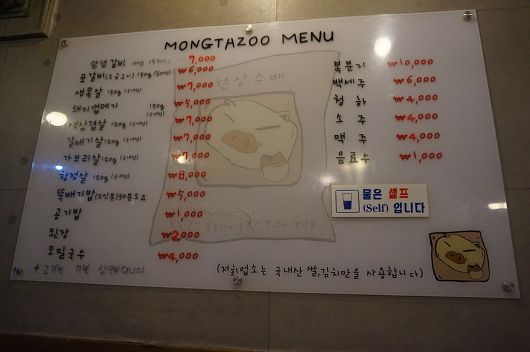 MONGTAZOO MENU
양념갈비 7,000
문갈비(소금구이) ₩6,000
생목살 150g ₩7,000
돼지껍데기 150g ₩5,000
생삼겹살 120g ₩7,000
갈매기살 120g ₩7,000
가브리살 120g ₩7,000
항정살 120g ₩8,000
뚝배기밥(2인분)30분소요 ₩5,000
공기밥 ₩1,000
된장 ₩2,000
모밀국수 ₩4,000
현상수배
복분자 ₩10,000
백세주 ₩6,000
청하 ₩4,000
소주 ₩4,000
맥주 ₩4,000
음료수 ₩1,000
물은 셀프
(Self) 입니다
* 고기는 기본 입니다
(저희업소는 국내산 쌀,김치만을 사용합니다)